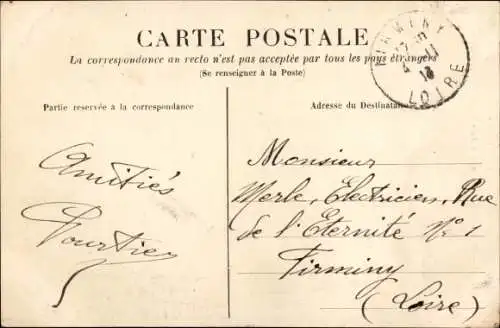 CARTE POSTALE
La correspondance au recto n'est pas acceptée par tous les pays étrangers
(Se renseigner à la Poste)
Partie réservée à la correspondance
Adresse du Destinataire
FIRMINY
4 -11
13
LOIRE
Amitiés
Monsieur
Merle, Electricien, Rue
de l'Eternité N° 1
Firminy
(Loire)